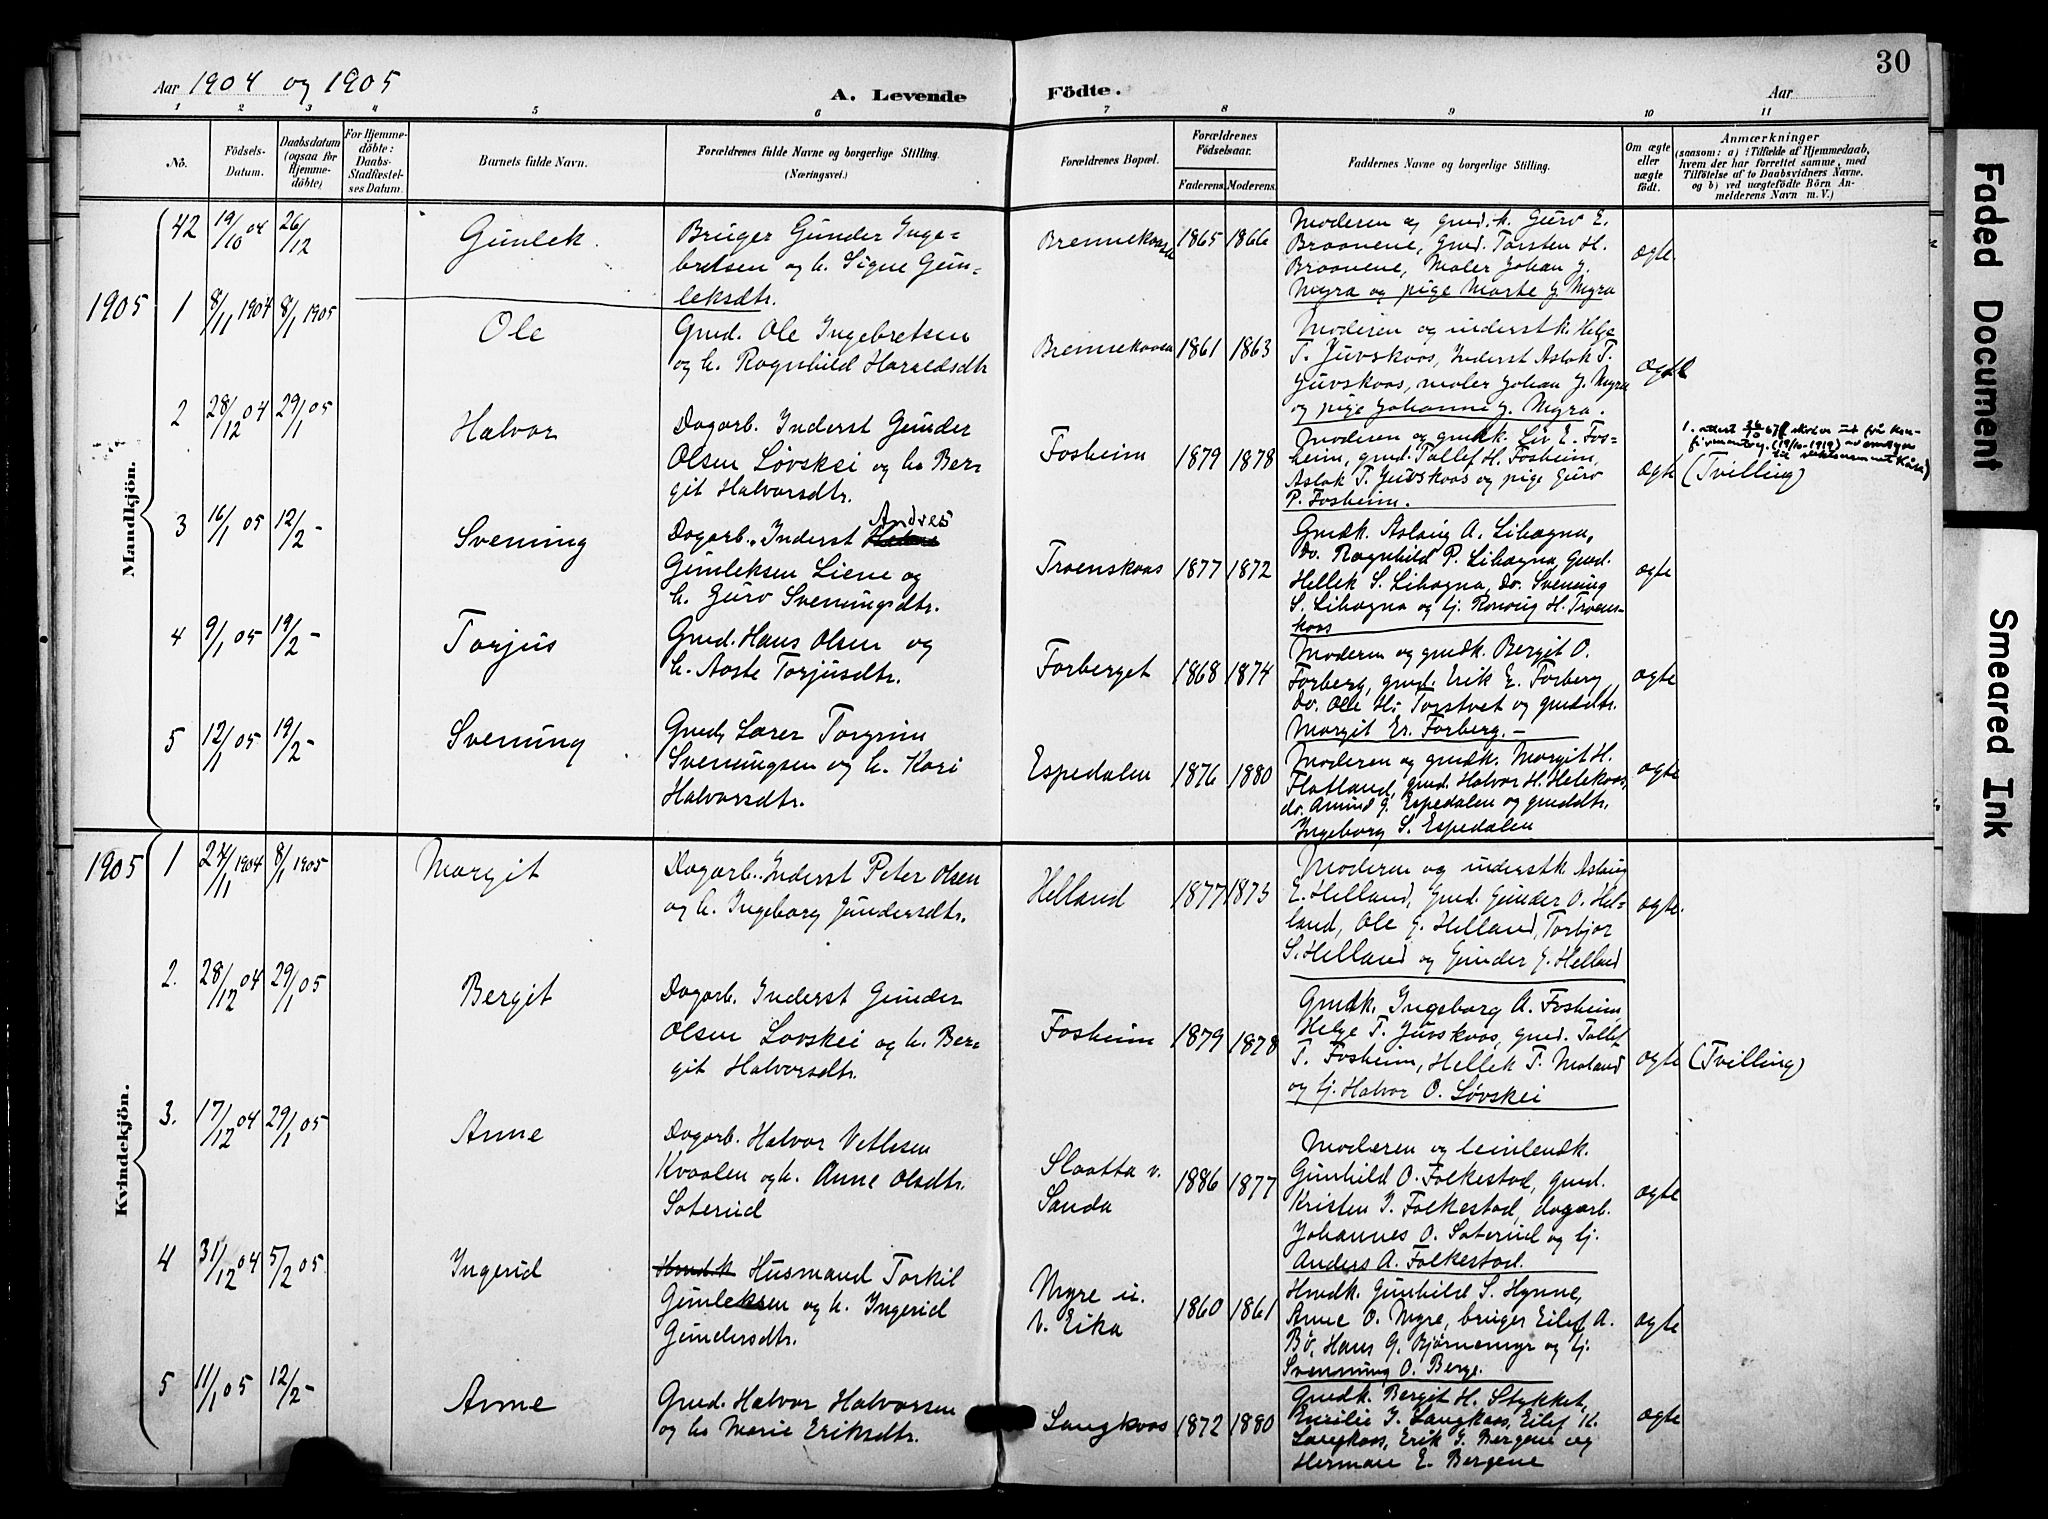 30
Aar 1904 og 1905
A. Levende Födte.
Aar
1 2 3 4 5 6 7 8 9 10 11
No.
Födsels-Datum.
Daabsdatum (ogsaa for Hjemmedöbte)
For Hjemmedöbte: Daabs-Stadfæstelses Datum.
Barnets fulde Navn.
Forældrenes fulde Navne og borgerlige Stilling. (Næringsvei.)
Forældrenes Bopæl.
Forældrenes Födselsaar.
Faderens. Moderens.
Faddernes Navne og borgerlige Stilling.
Om ægte eller uægte födt.
Anmærkninger
(saasom: a) i Tilfælde af Hjemmedaab, hvem der har forrettet samme, med Tilföielse af to Daabsvidners Navne, og b) ved uægtefödte Börn Anmelderens Navn m. V.)
Mandkjön.
42 19/10 04 26/12 Gunlek.
Bruger Gunder Inge-
bretsen og h. Signe Gun-
leksdtr.
1865 1866
Moderen og gmd.k. Guro E.
Braanene, Gmd. Torsten H.
Braanene, Maler Johan J.
Myra og pige Marte J. Myra
ægte
1905 1 8/11 1904 8/1 1905 Ole
Gmd. Ole Ingebretsen
og h. Ragnhild Haraldsdtr
Brennekaasa 1861 1863
Moderen og inderstk. Helge
T. Juvskaas, Inderst Aslak T.
Juvskaas, maler Johan J. Myra
og pige Johanne J. Myra.
ægte
2 28/12 04 29/1 05 Halvor
Dagarb. Inderst Gunder
Olsen Løvskei og h. Ber-
git Halvorsdtr.
Fosheim 1879 1878
Moderen og gmdk. Liv E. Fos-
heim, gmd. Tallef H. Fosheim,
Aslak T. Juvskaas og pige Guro
P. Fosheim.
ægte (Tvilling)
3 16/1 05 12/2 - Svenung
Andres
Dagarb. Inderst
Gunleksen Liene og
h. Guro Svenungsdtr.
Traenskaas 1877 1872
Gmdk. Aslaug A. Lihagna,
Do. Ragnhild P. Lihagna, Gmd.
Hellek S. Lihagna, Do. Svenung
S. Lihagna og tj. Ronoug H. Traens-
kaas
ægte
4 9/1 05 19/2 - Torjus
Gmd. Hans Olsen og
h. Aaste Torjusdtr.
Forberget 1868 1874
Moderen og gmdk. Bergit O.
Forberg, gmd. Erik E. Forberg
Do. Ole H. Torstvet og gmddtr.
Margit Er. Forberg.-
ægte
5 12/1 05 19/2 - Svenung
Gmd. Lærer Torgrim
Svenungsen og h. Kari
Halvorsdtr.
Espedalen 1876 1880
Moderen og gmdk. Margit H.
Flatland, gmd. Halvor H. Helekaas,
do. Amund G. Espedalen og gmddtr.
Ingeborg S. Espedalen
ægte
Kvindekjön.
1905 1 24/11 1904 8/1 1905 Margit
Dagarb. Inderst Peter Olsen
og h. Ingeborg Gundersdtr.
Helland 1877 1873
Moderen og inderstk. Aslaug
E. Helland, Gmd. Gunder O. Hel-
land, Ole G. Helland, Torbjør
S. Helland og Gunder G. Helland
ægte.
2. 28/12 04 29/1 05 Bergit
Dagarb. Inderst Gunder
Olsen Løvskei og h. Ber-
git Halvorsdtr.
Fosheim 1879 1878
Gmdk. Ingeborg A. Fosheim,
Helge T. Juvskaas, gmd. Tallef
T. Fosheim, Hellek T. Moland
og tj. Halvor O. Løvskei
ægte (Tvilling)
3. 17/12 04 29/1 05 Anne
Dagarb. Halvor Vetlesen
Kvaalen og h. Anne Olsdtr.
Saterud
Slaatta v.
Sanda 1886 1877
Moderen og leilendk.
Gunhild O. Folkestad, gmd.
Kristen J. Folkestad, dagarb.
Johannes O. Saterud og tj.
Anders A. Folkestad.
ægte
4 31/12 04 5/2 05 Ingerid
Husmand Torkil
Gunleksen og h. Ingerid
Gundersdtr.
Myre u.
v. Eika 1860 1861
Hmdk. Gunhild S. Hynne,
Anne O. Myre, bruger Eilef A.
Bö, Hans G. Bjørnemyr og tj.
Svennung O. Berge.
ægte
5 11/1 05 12/2 - Anne
Gmd. Halvor Halvorsen
og h. Marie Eriksdtr.
Langkaas 1872 1880
Gmdk. Bergit H. Stykket,
Emilie J. Langkaas, Eilef K.
Langkaas, Erik G. Bergene og
Herman E. Bergene
ægte
Faded Document
Smeared Ink